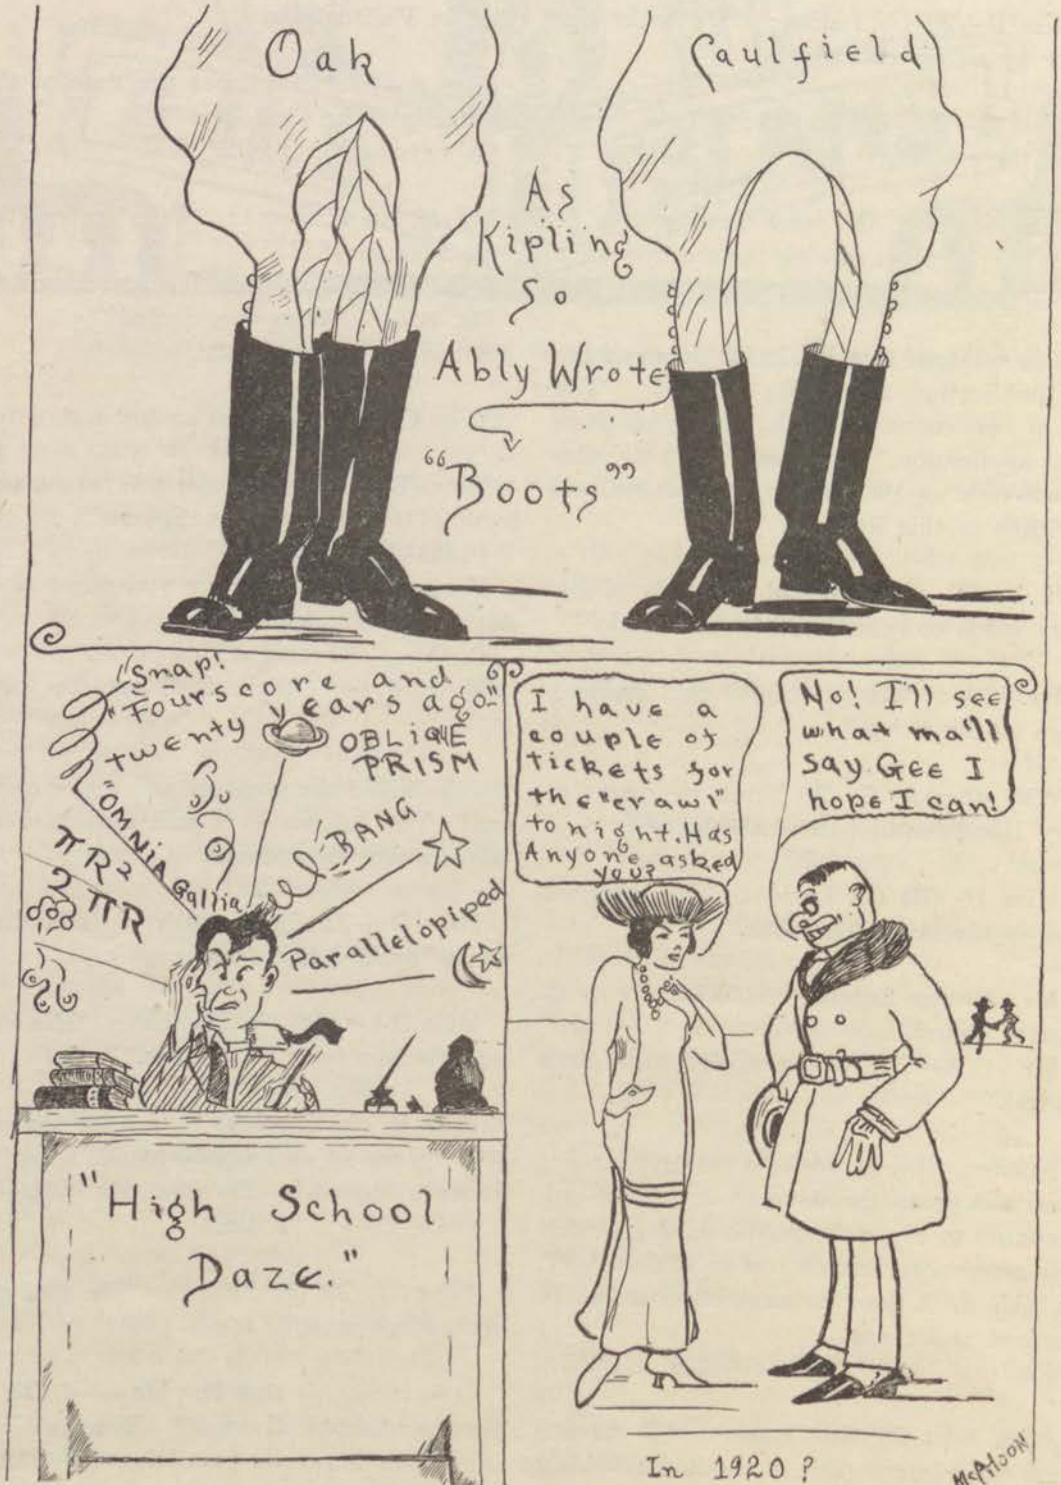 Oak
Caulfield
As
Kipling
So
Ably Wrote
"Boots"
"Snap!
"Fourscore and
twenty years ago"
OBLIQUE
PRISM
"OMNIA Gallia
BANG
πR2
2πR
Parallelopiped
"High School
Daze."
I have a
couple of
tickets for
the "crawl"
to night. Has
Anyone asked
you?
No! I'll see
what ma'll
say Gee I
hope I can!
In 1920?